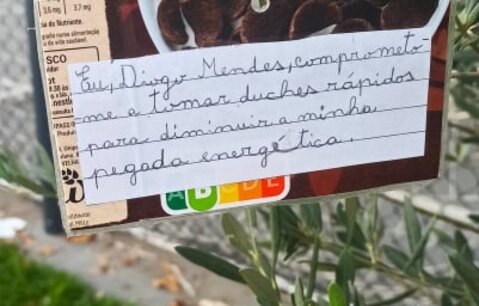 3,6 mg 3,7 mg
Eu, Diogo Mendes, comprometo-
me a tomar duches rápidos
para diminuir a minha
pegada energética.
A B C D E